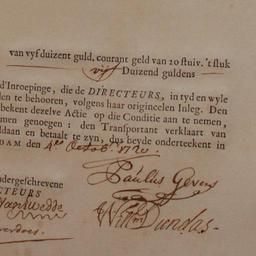 van vyf duizent guld. courant geld van 20 stuiv. 't stuk
vijf Duizend guldens
d'Inroepinge, die de DIRECTEURS, in tyd en wyle
len te behooren, volgens haar origineelen Inleg. Den
bekent dezelve Actie op die Conditie aan te nemen,
men genoegen: den Transportant verklaart van
ldaan en betaalt te zyn, dus beyde onderteekent in
DAM den 4en Octob. 1720.
ndergeschrevene
CTEURS
Paulus Gevers
Willm Dundas